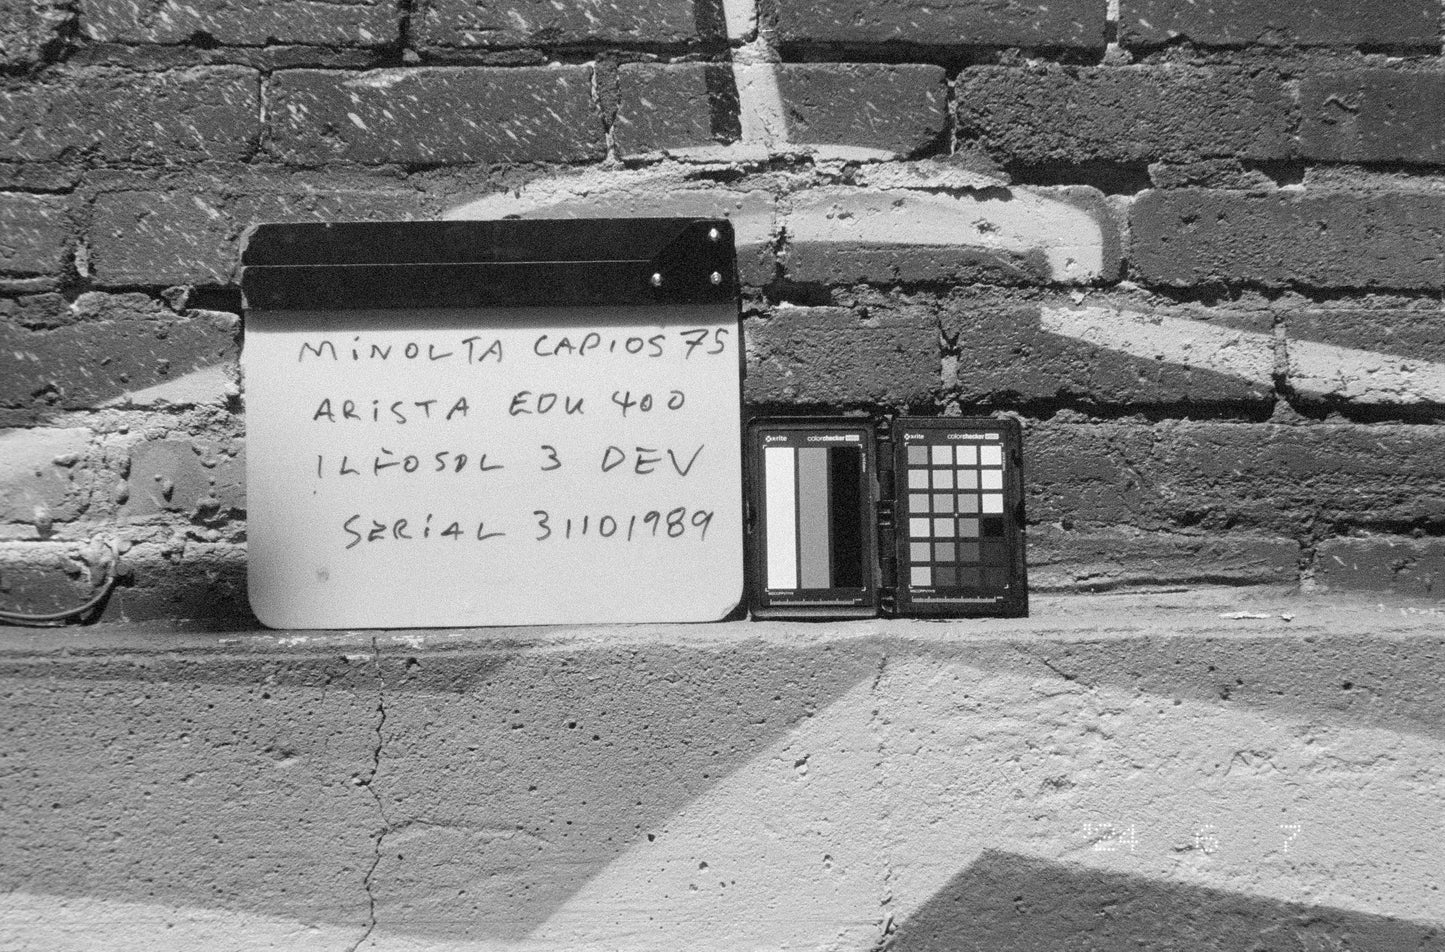 MINOLTA CAPIOS 75
ARISTA EDU 400
ILFOSOL 3 DEV
SERIAL 31101989
x-rite colorchecker
x-rite colorchecker
'24 6 7